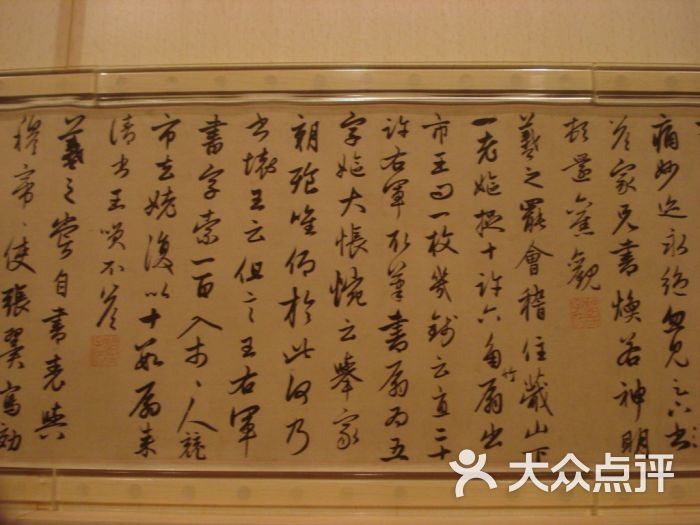 痛妙迹永絕忽見
答家兄書煥若神明
頓還舊觀
羲之罷會稽住蕺山下
一老嫗捉十許六角竹扇出
市王問一枚幾錢云直二十
許右軍取筆書扇為五
字嫗大悵惋云舉家
朝飡唯仰於此何乃
書壞王云但言王右軍
書字索一百入市〻人競
市去姥復以十數扇來
請書王笑不答
羲之嘗自書表與
穆帝〻使張翼寫効
大众点评